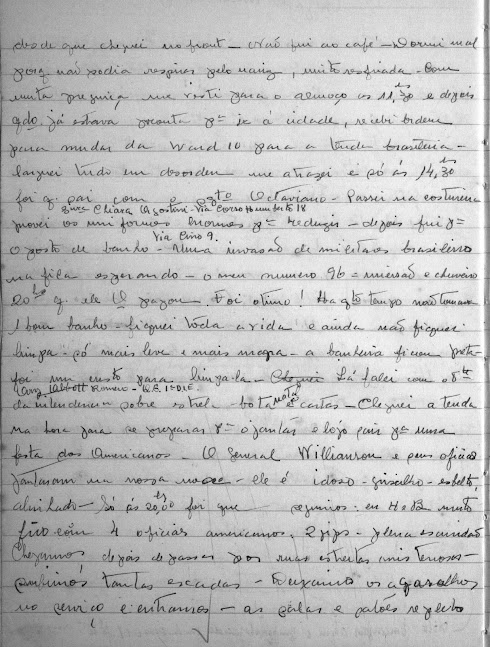 desde que cheguei no front – Não fui ao café – Dormi mal
porq não podia respirar pelo nariz, muito resfriada – Com
muita preguiça me vesti para o almoço as 11,30 hs e depois
qdo já estava pronta pª ir à cidade, recebi ordem
para mudar da Ward 10 para a tenda brasileira –
larguei tudo em desordem me atrazei e só às 14,30 hs
foi q sai com o Octaviano – Passei na costureira
Chiara Agostini – Via
provei os uniformes enormes pª reduzir – depois fui pª
Via Cino 9.
o posto de banho – Uma invasão de militares brasileiros
na fila esperando – o meu numero 96 – imersão e chuveiro
20 q ele pagou. Foi otimo! Ha qto tempo não tomava
1 bom banho – fiquei toda a vida e ainda não fiquei
limpa – só mais leve e mais magra – a banheira ficou preta
foi um custo para limpa-la – Lá falei com o
Romero – 1ª D.I.E.
da intendencia sobre estrela – bota e cartas – Cheguei a tenda
na hora para me preparar pª o jantar e logo sair pª uma
festa dos Americanos – O General Willianson e seus oficiais
jantaram na nossa – ele é idoso – grisalho – esbelto,
alinhado – Só ás 20,00 hs foi que seguimos: eu H e B muito
frio com 4 oficiais americanos, 2 jips – plena escuridão
Chegamos depois de passar por ruas estreitas misteriosas –
subimos tantas escadas – Deixamos os agasalhos
no serviço e entramos – as salas e salões repletos